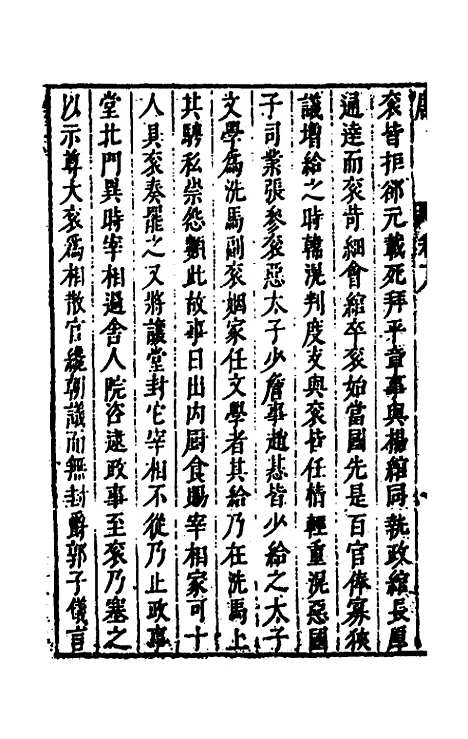 衮皆拒郤元載死拜平章事與楊綰同執政綰長厚
通達而衮苛細會綰卒衮始當國先是百官俸寡狹
議增給之時韓滉判度支與衮皆任情輕重滉惡國
子司業張參衮惡太子少詹事趙惎皆少給之太子
文學爲洗馬副衮姻家任文學者其給乃在洗馬上
其騁私崇怨類此故事日出内厨食賜宰相家可十
人具衮奏罷之又將讓堂封它宰相不從乃止政事
堂北門異時宰相過舍人院咨逮政事至衮乃塞之
以示尊大衮爲相散官纔朝議而無封爵郭子儀言